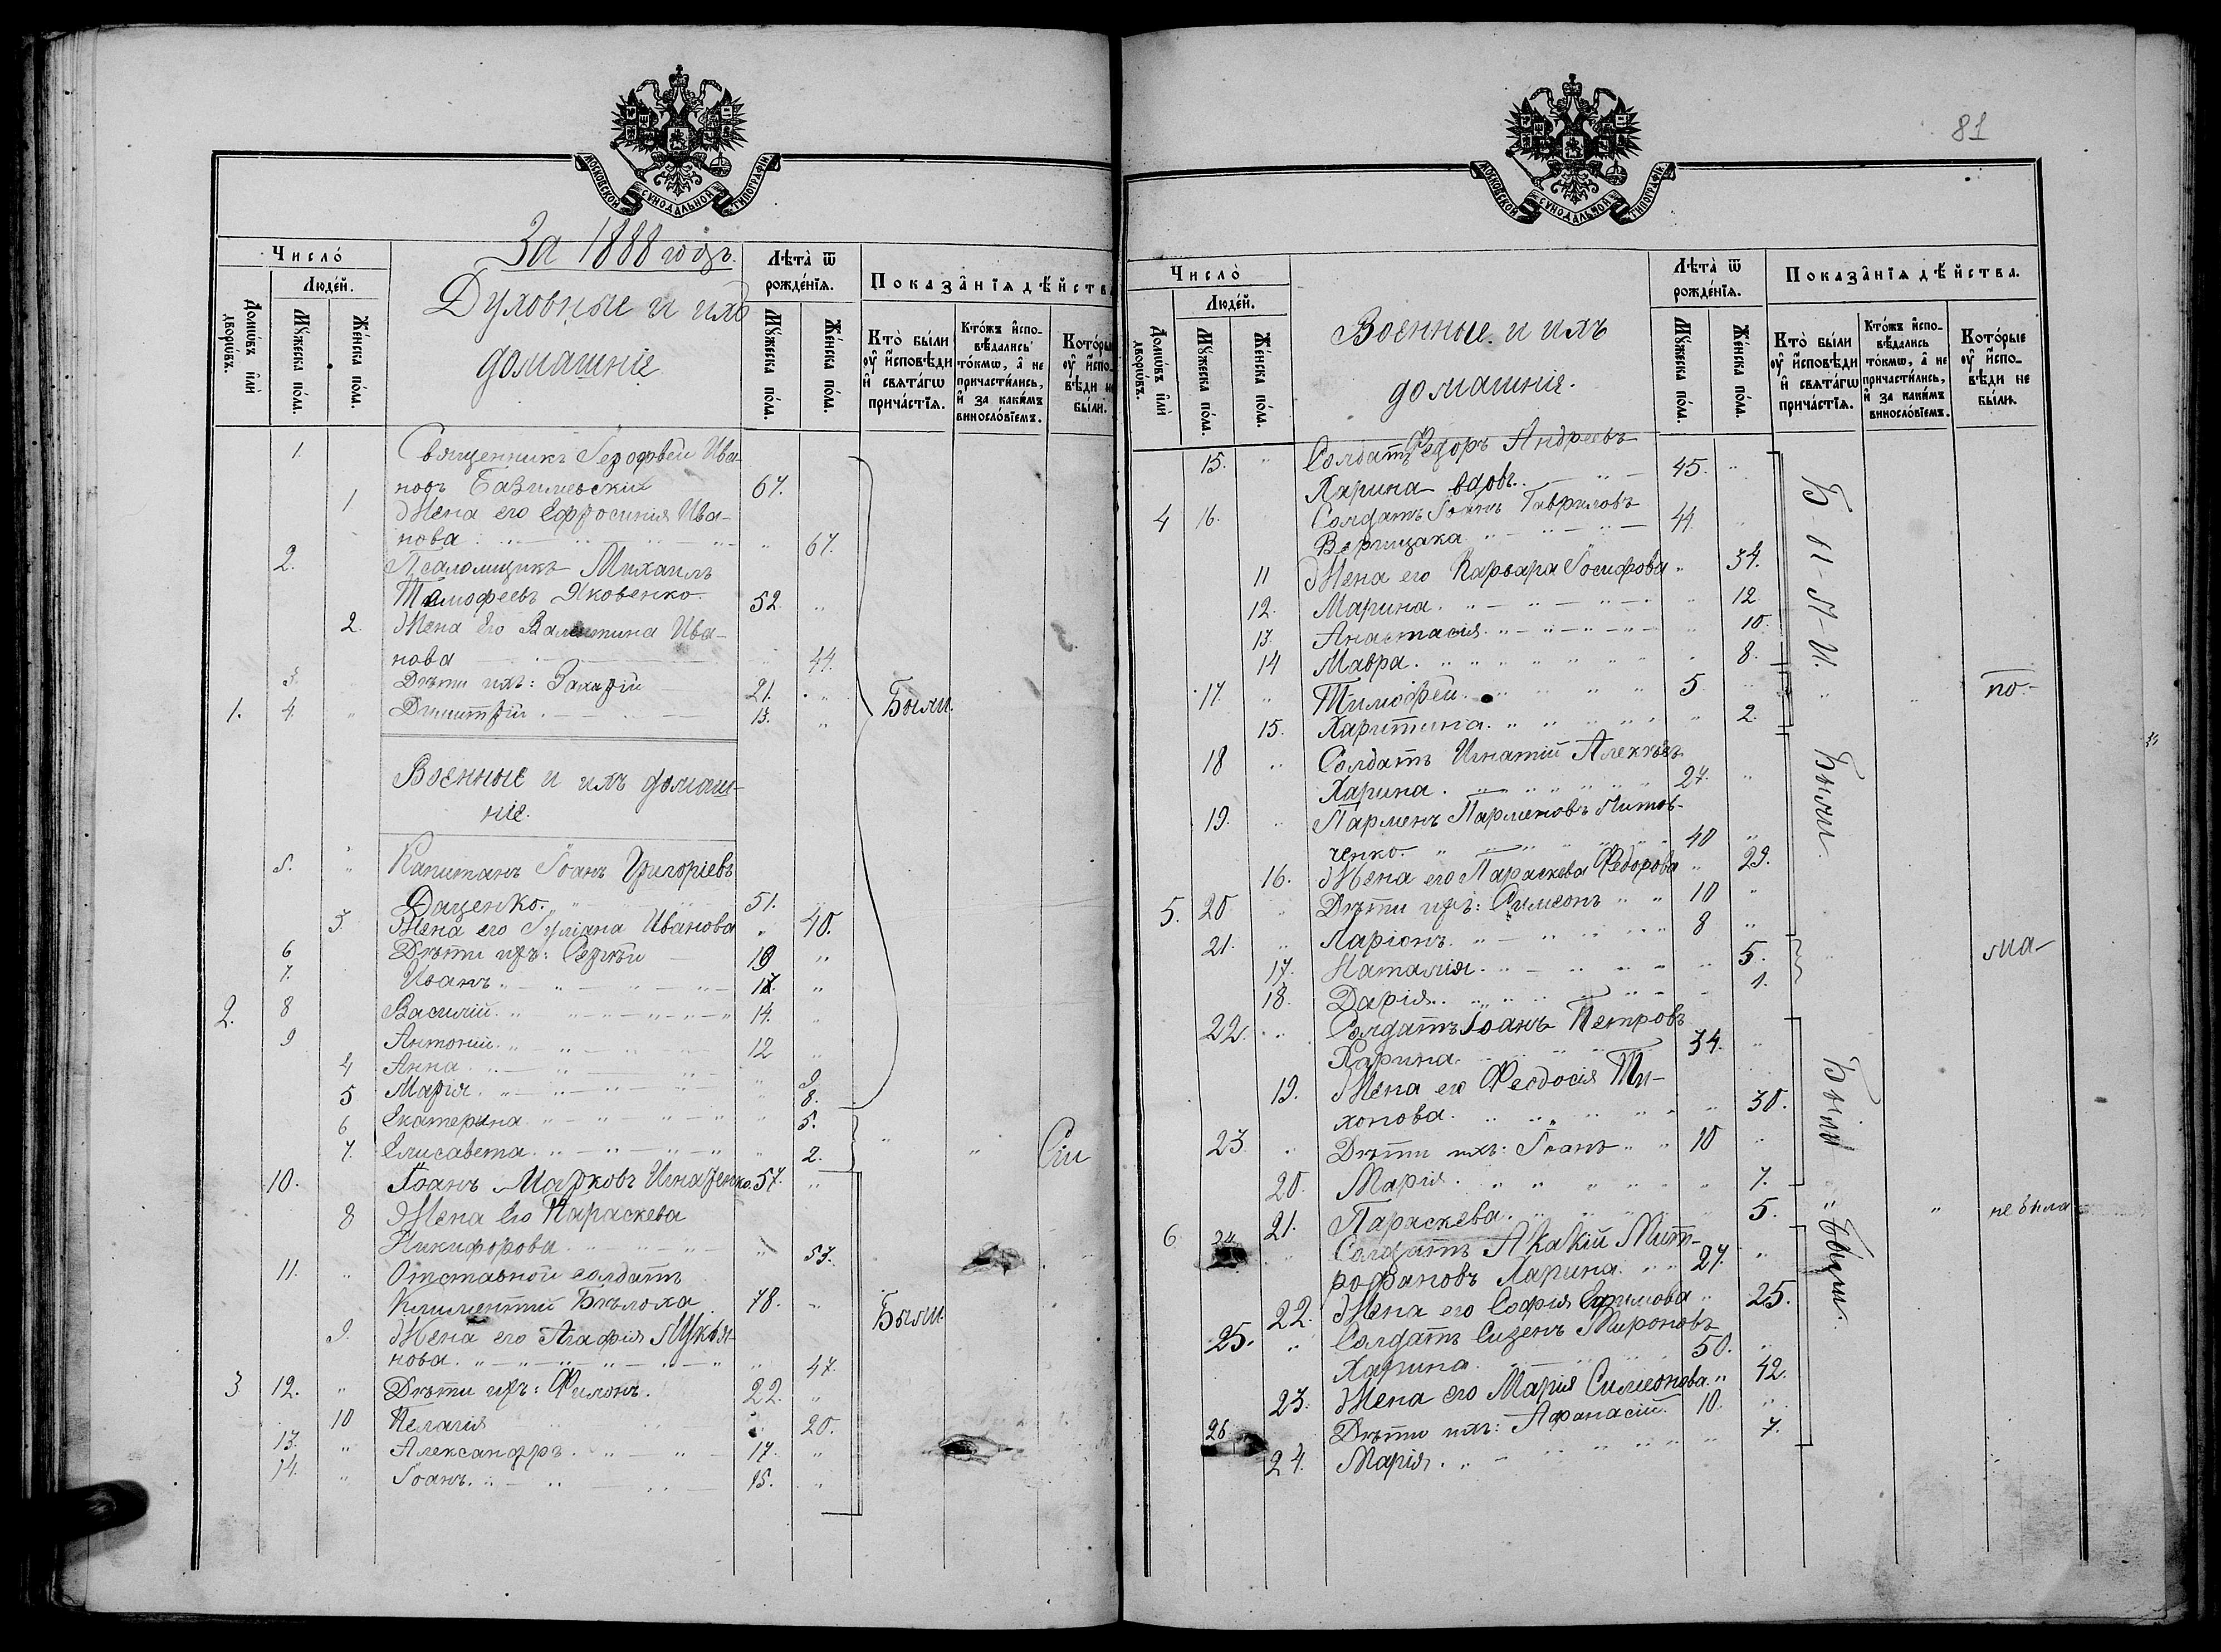 МОСКОВСКОЙ СѴНОДАЛЬНОЙ ТИПОГРАФІИ
За 1888 годъ.
Число̀
Люде́й.
Домѡ́въ и҆лѝ дворѡ́въ.
Мꙋ́жеска по́ла.
Же́нска по́ла.
Духовные и ихъ
домашніе
Лѣта̀ ѿ рожде́нїѧ.
Мꙋ́жеска по́ла.
Же́нска по́ла.
Показа̂нїѧ дѣ́йства
Кто̀ бы́ли оу҆ и҆́сповѣди и҆ свѧта́гѡ прича́стїѧ.
Кто́жъ и҆спо-
вѣ́дались
то́кмѡ, а҆ не
причасти́лись,
и҆ за каки́мъ
винослѡ́вїемъ.
Кото́рые
оу҆ и҆спо-
вѣди не
бы́ли.
1. Священникъ Іерофѣй Ива-
новъ Базилевскій 67.
1 Жена его Ефросинія Ива-
нова 67.
2. Псаломщикъ Михаилъ
Тимофеевъ Яковенко. 52. "
2. Жена его Валентина Ива-
нова 44.
3. Дѣти ихъ: Захарій 21. "
1. 4. " Димитрій 13. " Были.
Военные и ихъ домаш-
ніе.
5. " Капитанъ Іоанъ Григоріевъ
Даценко. 51.
3 Жена его Іуліана Иванова " 40.
6 Дѣти ихъ: Сергѣй 19 "
7. Иванъ 17. "
2. 8 Василій 14. "
9 Антоній 12 "
4 Анна " 9
5 Марія " 8.
6 Екатерина " 5.
7. Елисавета " 2. " " Сіи
10. Іоанъ Марковъ Игнатенко. 57. "
8 Жена его Параскева
Никифорова " 53.
11. " Отставной солдатъ
Климентій Бѣлоха 78. " Были.
9. Жена его Агафія Лукья-
нова 47.
3 12. " Дѣти ихъ: Филонъ. 22. "
10 Пелагія " 20.
13. " Александръ 17. "
14. " Іоанъ 15. "
81
МОСКОВСКОЙ СѴНОДАЛЬНОЙ ТИПОГРАФІИ
Число̀
Люде́й.
Домѡ́въ и҆лѝ дворѡ́въ.
Мꙋ́жеска по́ла.
Же́нска по́ла.
Военные и ихъ
домашніе.
Лѣта̀ ѿ рожде́нїѧ.
Мꙋ́жеска по́ла.
Же́нска по́ла.
Показа̂нїѧ дѣ́йства.
Кто̀ бы́ли
оу҆ и҆сповѣди
и҆ свѧта́гѡ
прича́стїѧ.
Кто́жъ и҆спо-
вѣ́дались
то́кмѡ, а҆ не
причасти́лись,
и҆ за каки́мъ
винослѡ́вїемъ.
Кото́рые
оу҆ и҆спо-
вѣди не
бы́ли.
15. " Солдатъ Федоръ Андреевъ
Харина вдовъ 45. "
4 16. Солдатъ Іоанъ Гавриловъ
44. "
11 Жена его Варвара Іосифова " 34.
12. Марина " 12
13. Анастасія " 10.
14 Мавра " 8. Б-ы-л-и.
17. " Тимофей 5 " " " по-
15. Харитина " 2.
18 " Солдатъ Игнатій Алексѣевъ
Харина 27. "
19. " Парменъ Парменовъ Литов-
ченко 40 " Были
16. Жена его Параскева Федорова " 29.
5. 20 " Дѣти ихъ: Симеонъ 10 "
21. " Ларіонъ 8 "
17. Наталія " 5. " " ма-
18. Дарія " 1.
22. " Солдатъ Іоанъ Петровъ
Харина 34. "
19. Жена его Феодосія Ти-
хонова " 30. Были
23 " Дѣти ихъ: Іоанъ 10 "
20. Марія " 7.
21. Параскева " 5. " " не была
6 24 " Солдатъ Акакій Мит-
рофановъ Харина 27. " Были.
22. Жена его Софія Ефимова " 25.
25. " Солдатъ Мироновъ
Харина 50. "
23. Жена его Марія Симеонова " 42.
26 Дѣти ихъ: Афанасій 10. "
24. Марія " 7.